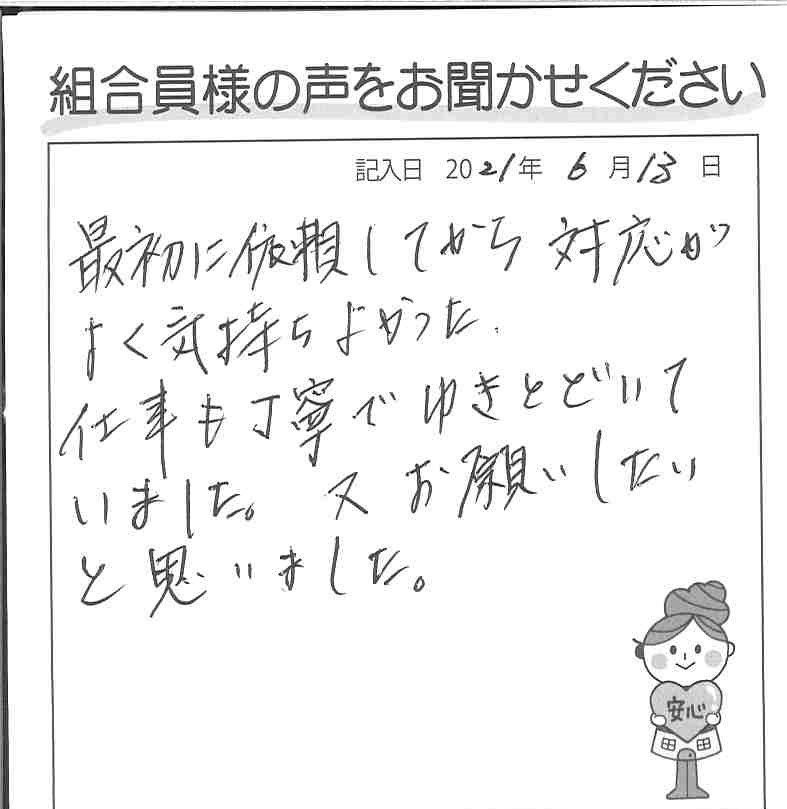 組合員様の声をお聞かせください
記入日 2021年 6月13日
最初に依頼してから 対応が
よく気持ちよかった.
仕事も丁寧で ゆきとどいて
いました。又 お願いしたい
と思いました。
安心